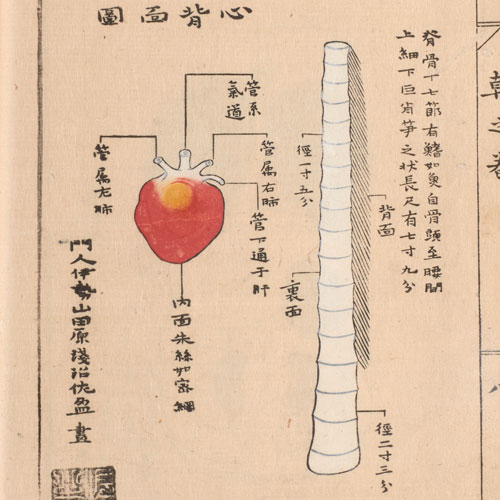 脊骨十七節有鰭如魚自骨頭至腰間
上細下巨肖笋之状長尺有七寸九分
背面
徑一寸五分
裏面
徑二寸三分
心背面圖
管系
氣道
管属右肺
管下通于肝
管属左肺
内面朱絲如密網
門人伊勢山田原淺沼佐盈畫